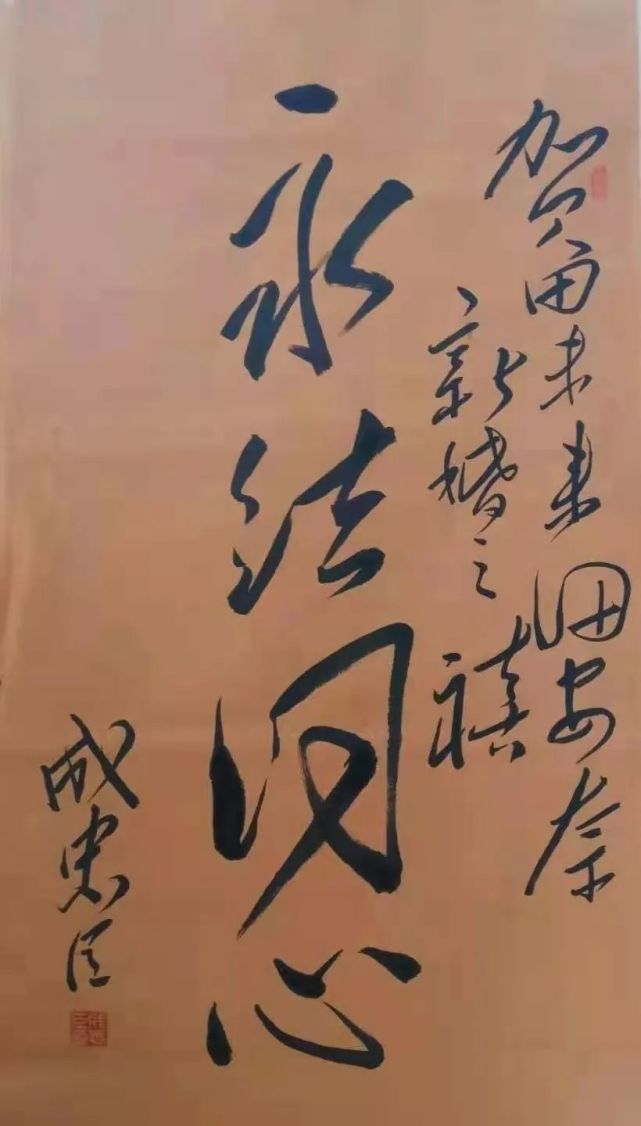 贺田未来安奈
新婚之禧
永结同心
成忠臣